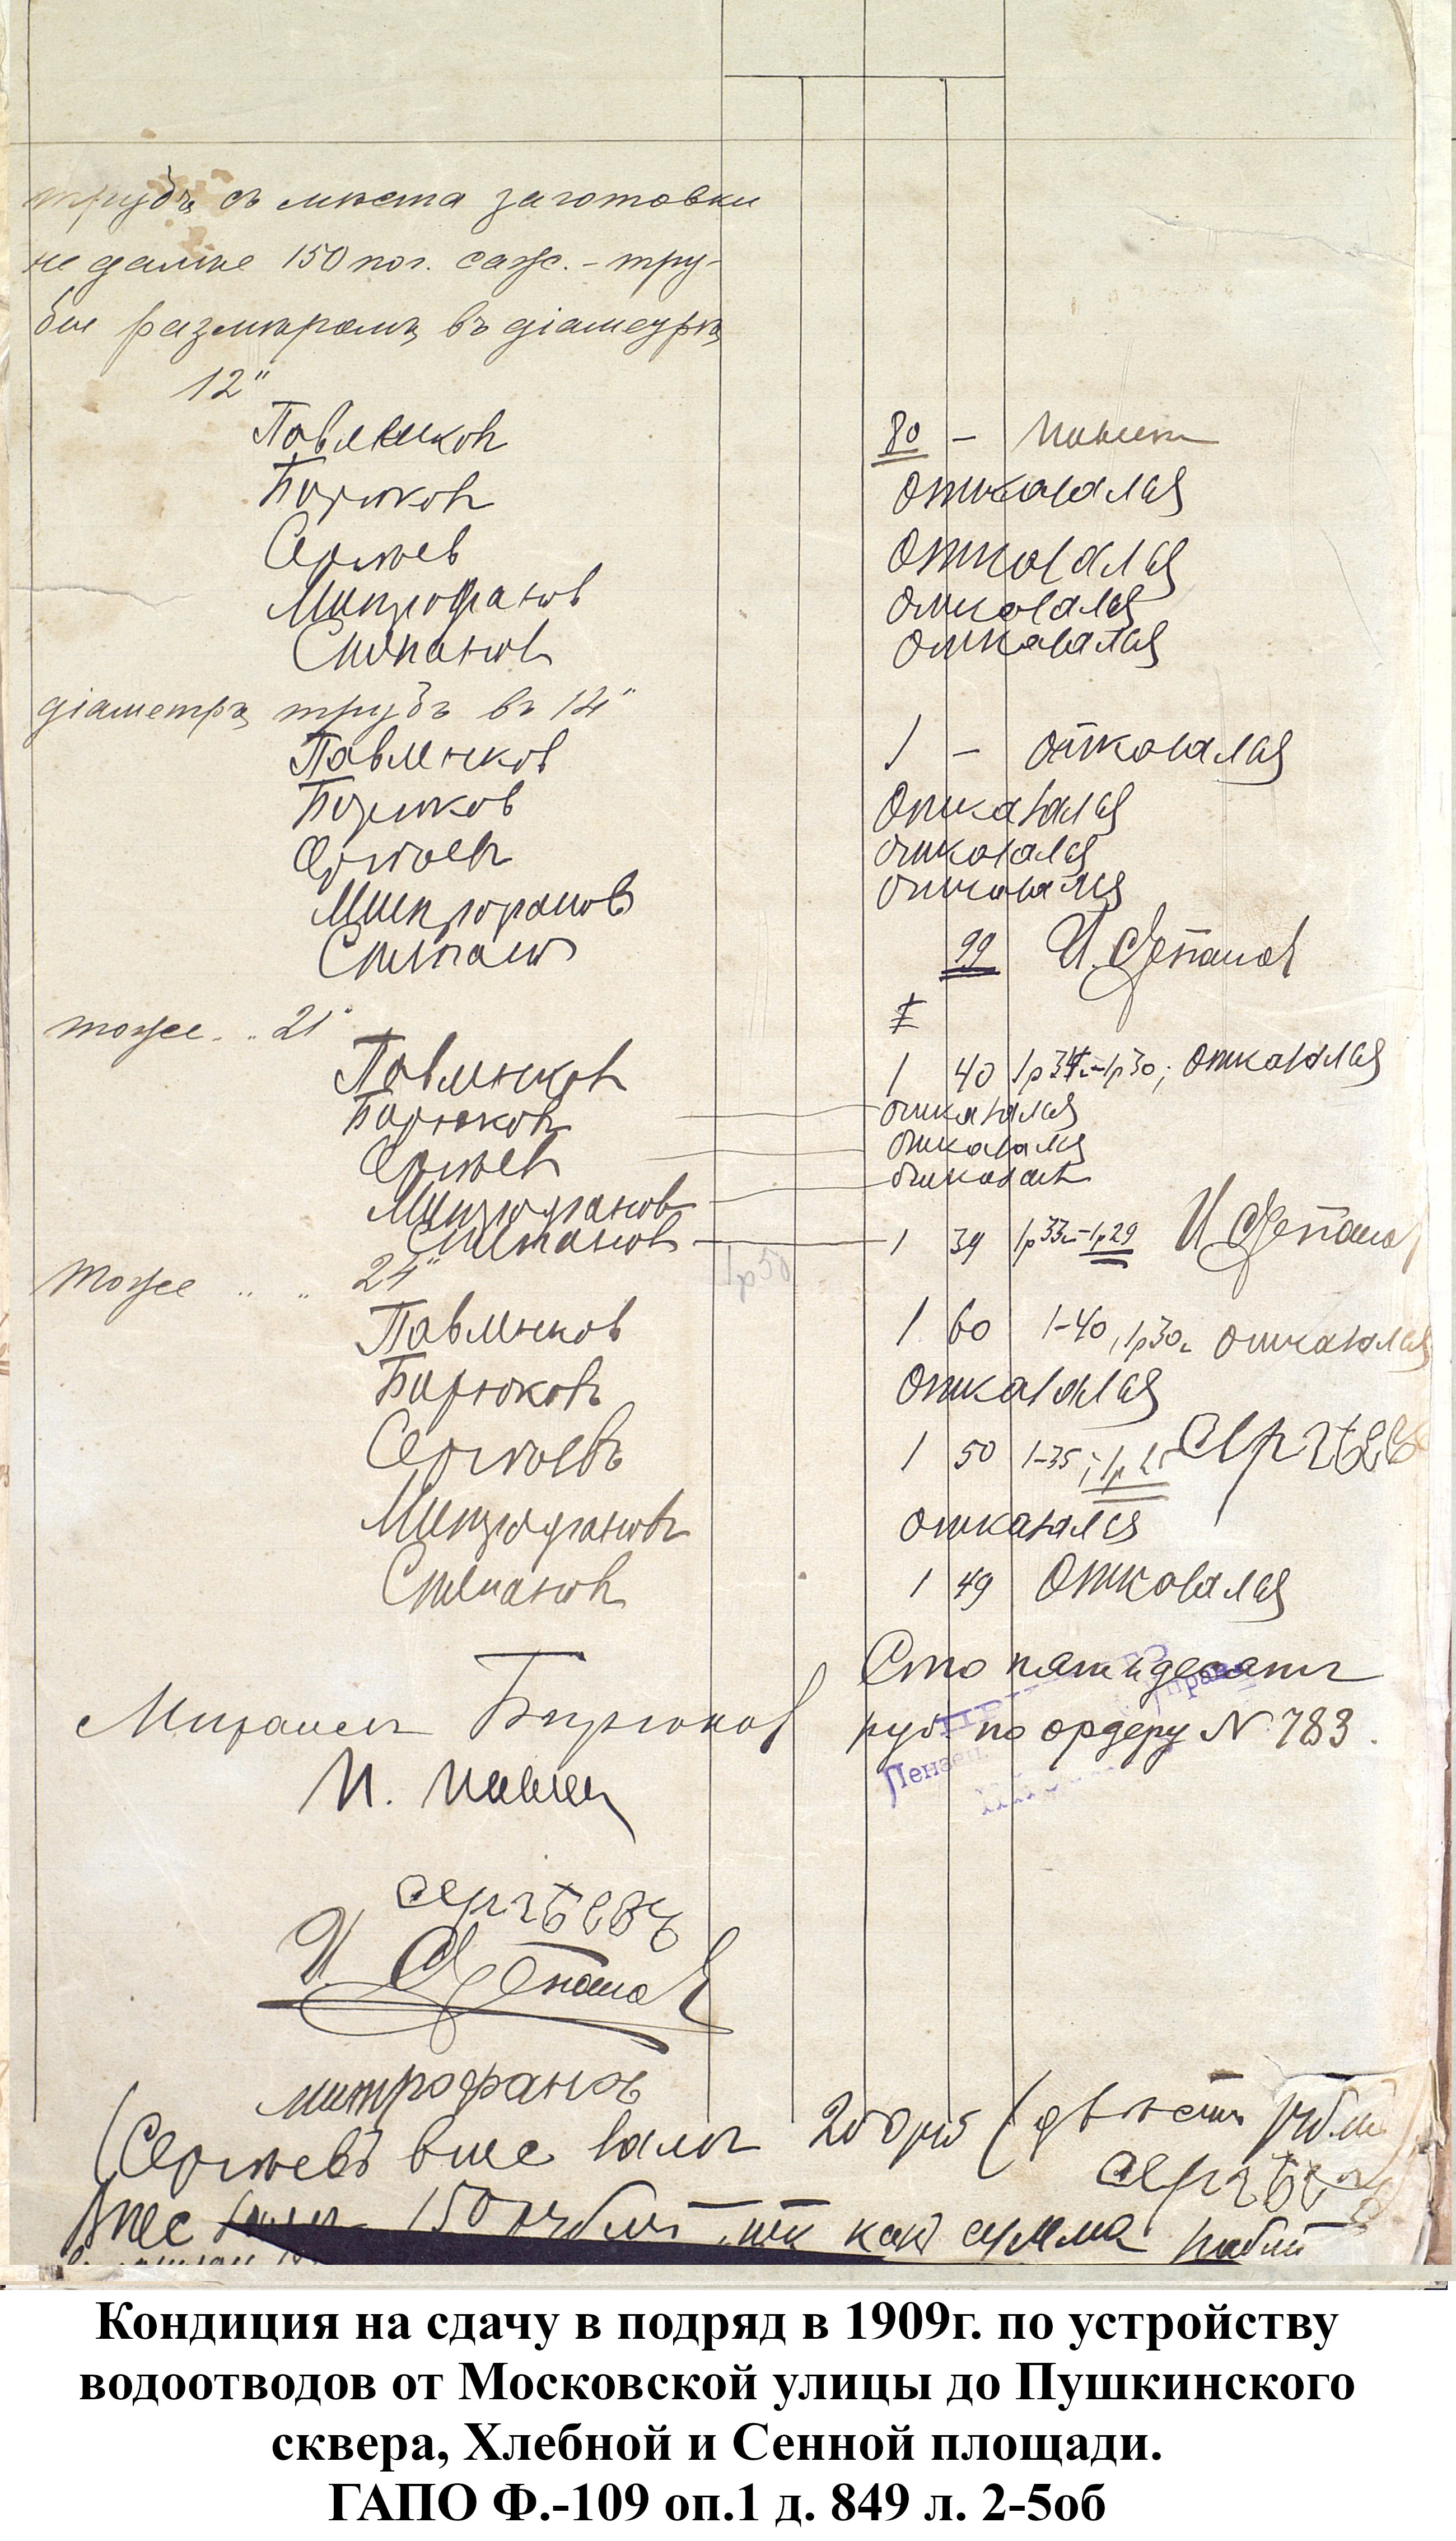 трубъ съ мѣста заготовки
не далѣе 150 пог. саж. - тру-
бы размѣромъ въ діаметрѣ
12"
Павлючковъ 80 -
Бирюковъ отказался
Сергѣев отказался
Митрофанов отказался
Степанов отказался
діаметръ трубъ въ 14"
Павлючков 1 - отказался
Бирюков отказался
Сергѣевъ отказался
Митрофанов отказался
Степанов 99 И. Степанов
тоже " 21"
Павлючков 1 40 1р 30; отказался
Бирюковъ отказался
Сергѣев отказался
Митрофановъ отказался
Степановъ 1 39 1р 33к - 1р 29 И Степанов
Тоже " " 24"
Павлючков 1 60 1-40, 1р 30к отказался
Бирюковъ отказался
Сергѣевъ 1 50 1-35; 1р Сергѣевъ
Митрофановъ отказался
Степановъ 1 49 отказался
Сто пятьдесятъ
Михаилъ Бирюков руб по ордеру N 783.
Пензен.
И.
Сергѣевъ
И. Степанов
Митрофановъ
(Сергѣевъ внес залог 200 руб (двѣсти рублей
Сергѣевъ
Внес 150 рублей так как сумма работ
Кондиция на сдачу в подряд в 1909г. по устройству
водоотводов от Московской улицы до Пушкинского
сквера, Хлебной и Сенной площади.
ГАПО Ф.-109 оп.1 д. 849 л. 2-5об